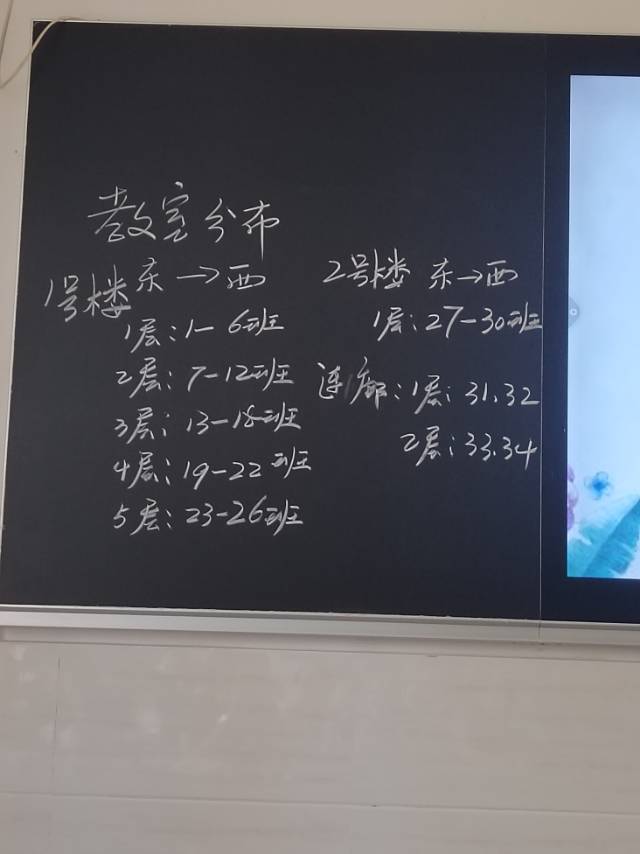 教室分布
1号楼 东→西
1层:1-6班
2层:7-12班
3层:13-18班
4层:19-22班
5层:23-26班
2号楼 东→西
1层:27-30班
连廊:1层:31.32
2层:33.34